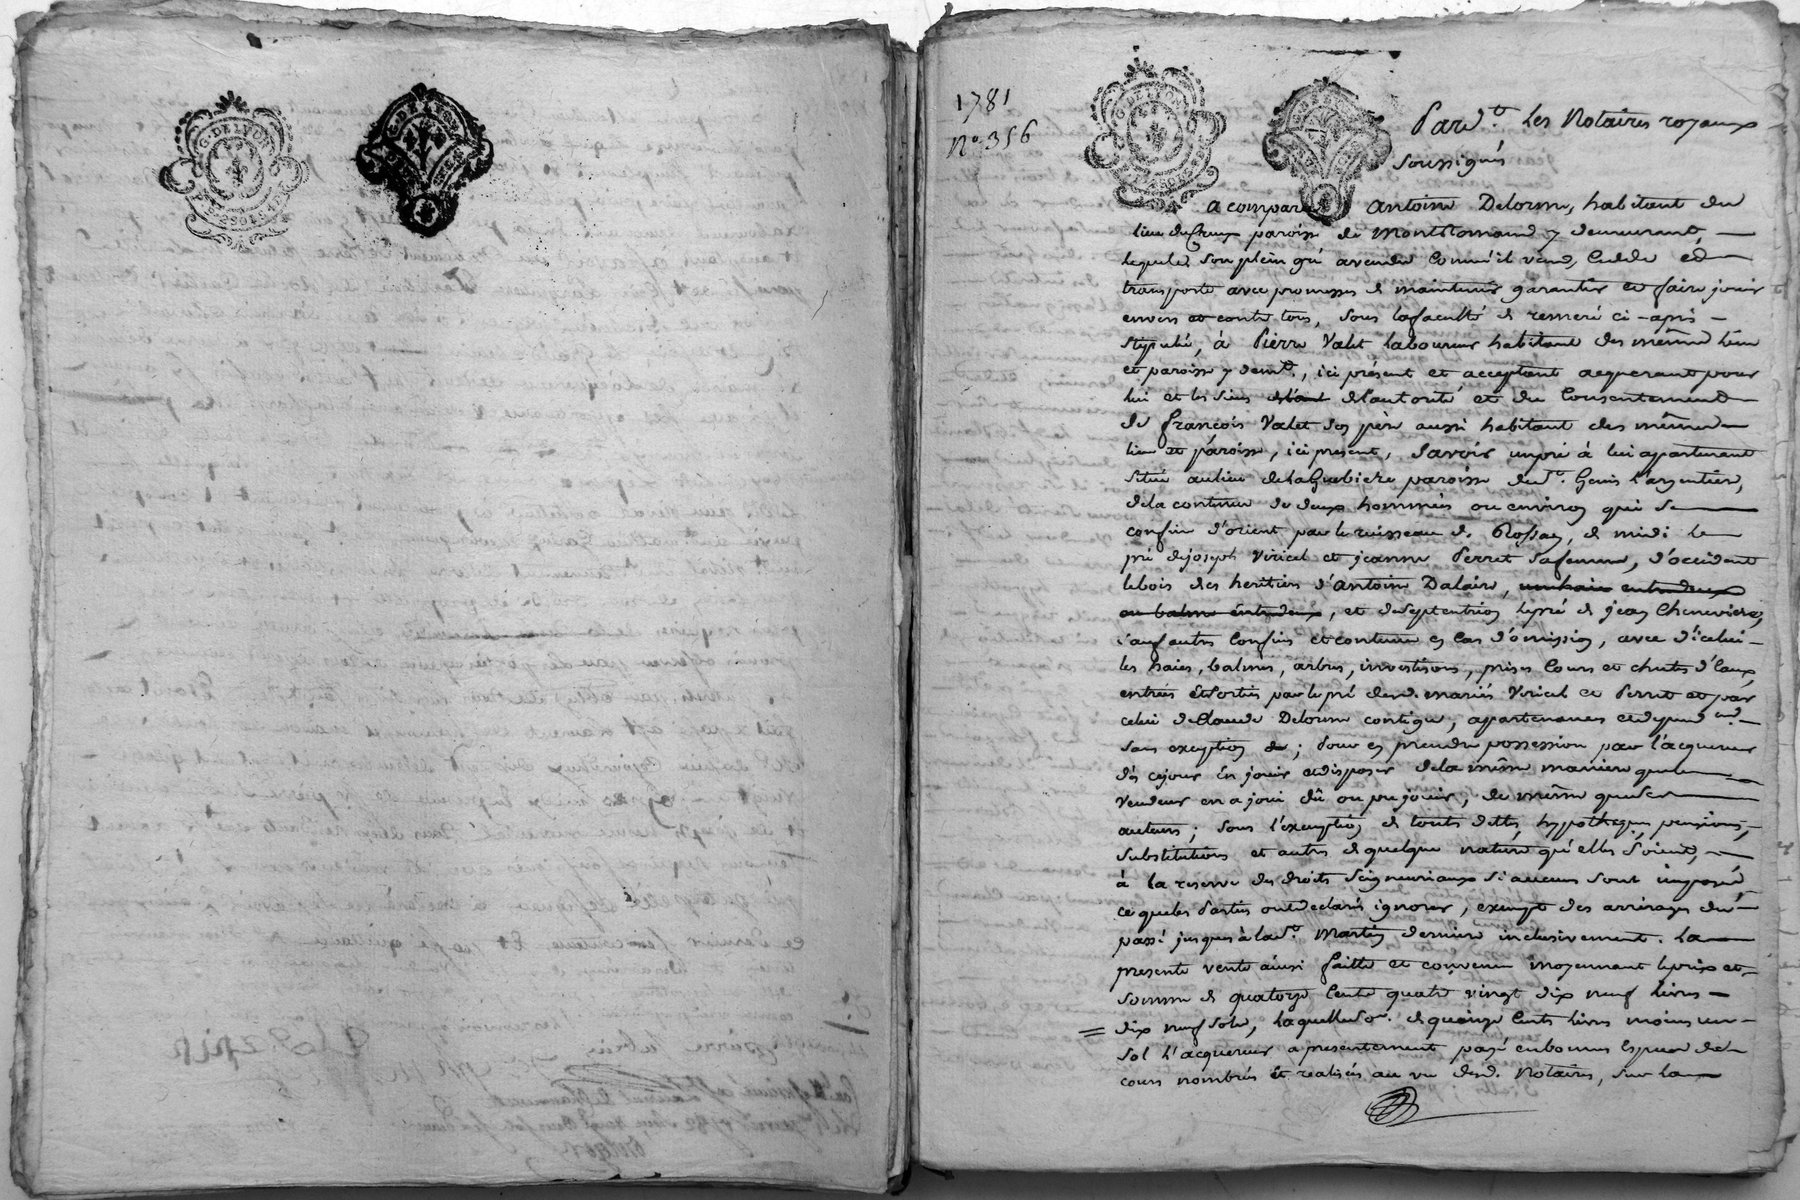 G. DE LYON
1781
N.º 356
Pard.t les Notaires royaux
soussignés
a comparu Antoine Delorme, habitant du
lieu du paroisse de Montromand y demeurant,
lequel de son plein gré a vendu comme il vend, cedde et
transporte avec promesses de maintenir garantir et faire jouir
envers et contre tous, sous la faculté de remeré ci-après
stipulée, à Pierre Valet laboureur habitant des même lieu
et paroisse y dem.t, ici présent et acceptant acquerant pour
lui et les siens de l'autorité et du consentement
de françois Valet son père aussi habitant des mêmes
lieu et paroisse, ici present, Savoir un pré à lui appartenant
situé au lieu de la paroisse de S.t Genis l'argentière,
de la contenue de deux hommées ou environ qui se
confine d'orient par le ruisseau de Rossay, de midi le
pré de joseph Viricel et jeanne Perret sa femme, d'occident
le bois des heritiers d'Antoine Dalaire, une haie entredeux
ou balme entredeux, et de septentrion le pré de jean Chenevière,
sauf autres confins et contenue en cas d'omission, avec d'icelui
les haies, balmes, arbres, investisons, prises cours et chutes d'eaux,
entrées et sorties par le pré desd. mariés Viricel et Perret et par
celui de Claude Delorme contigu, apartenances et dépend.ces
sans exception ; Pour en prendre possession par l'acquereur
dès ce jour en jouir et disposer de la même manière que le
vendeur en a joui dû ou pu jouir, de même que ses
auteurs ; Sous l'exemption de toutes dettes, hypotheques, pensions,
substitutions et autres de quelque nature qu'elles soient,
à la reserve des droits seigneuriaux si aucuns sont imposés,
ce que les Parties ont declaré ignorer, exempt des arrérages du
passé jusques à la S.t Martin dernière inclusivement. La
presente vente ainsi faitte et convenue moyennant le prix et
somme de quatorze cents quatre vingt dix neuf livres
dix neuf sols, laquelle de quinze cents livres moins un
sol l'acquereur a presentement payé en bonnes espèces de
cours nombrés et réalisés au vu desd. Notaires, sur la